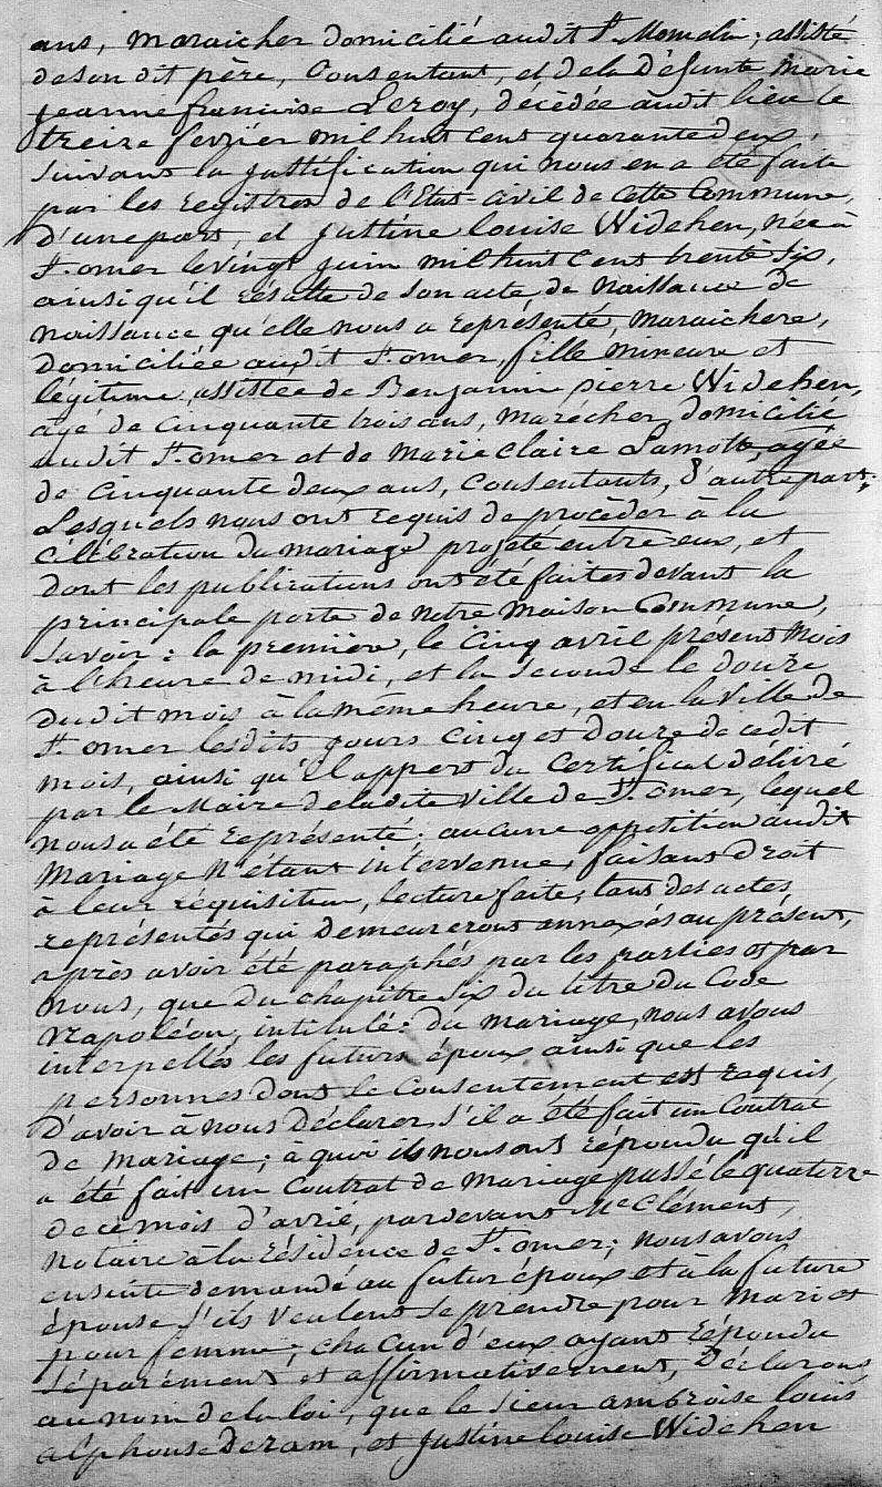 ans, maraicher domicilié audit St. Momelin; assisté
de son dit père, Consentant, et de la Défunte Marie
Jeanne françoise Leroy, décédée audit lieu le
treize fevrier mil huit cent quarante deux,
suivant la justification qui nous en a été faite
par les registres de l'Etat-civil de cette Commune,
D'une part, et Justine Louise Widehen, née à
St. omer le vingt juin mil huit cent trente six,
ainsi qu'il résulte de son acte de Naissance de
naissance qu'elle nous a représenté, maraichere,
Domiciliée audit St. omer, fille mineure et
légitime, assistée de Benjamin pierre Widehen,
agé de cinquante trois ans, marécher, domicilié
audit St. omer et de Marie Claire Lamotte, agée
de cinquante deux ans, Consentants, d'autre part;
Lesquels nous ont requis de procéder à la
Célébration du mariage projeté entre eux, et
dont les publications ont été faites devant la
principale porte de notre Maison Commune,
Savoir: la première, le Cinq avril présent Mois
à l'heure de midi, et la seconde le douze
Dudit mois à la même heure, et en la Ville de
St. omer lesdits jours cinq et Douze de cedit
mois, ainsi qu'il appert du Certificat délivré
par le Maire de ladite Ville de St. omer, lequel
nous a été représenté; aucune opposition audit
Mariage N'étant intervenue, faisant Droit
à leur réquisition, lecture faite, tant des actes
représentés qui Demeureront annexés au présent,
après avoir été paraphés par les parties et par
Nous, que Du chapitre Six du titre du Code
Napoléon, intitulé: du mariage, nous avons
interpellés les futurs époux ainsi que les
personnes dont le Consentement est requis,
D'avoir à nous Déclarer s'il a été fait un Contrat
de Mariage; à quoi ils nous ont répondu qu'il
a été fait un Contrat de Mariage passé le quaterze
de ce mois d'avril, pardevant Me Clément,
Notaire à la résidence de St. omer; nous avons
ensuite demandé au futur époux et à la future
épouse s'ils veulent se prendre pour Mari et
pour femme; chacun d'eux ayant répondu
séparément et affirmativement, Déclarons
au nom de la loi, que le sieur ambroise louis
alphonse Deram, et Justine louise Widehen